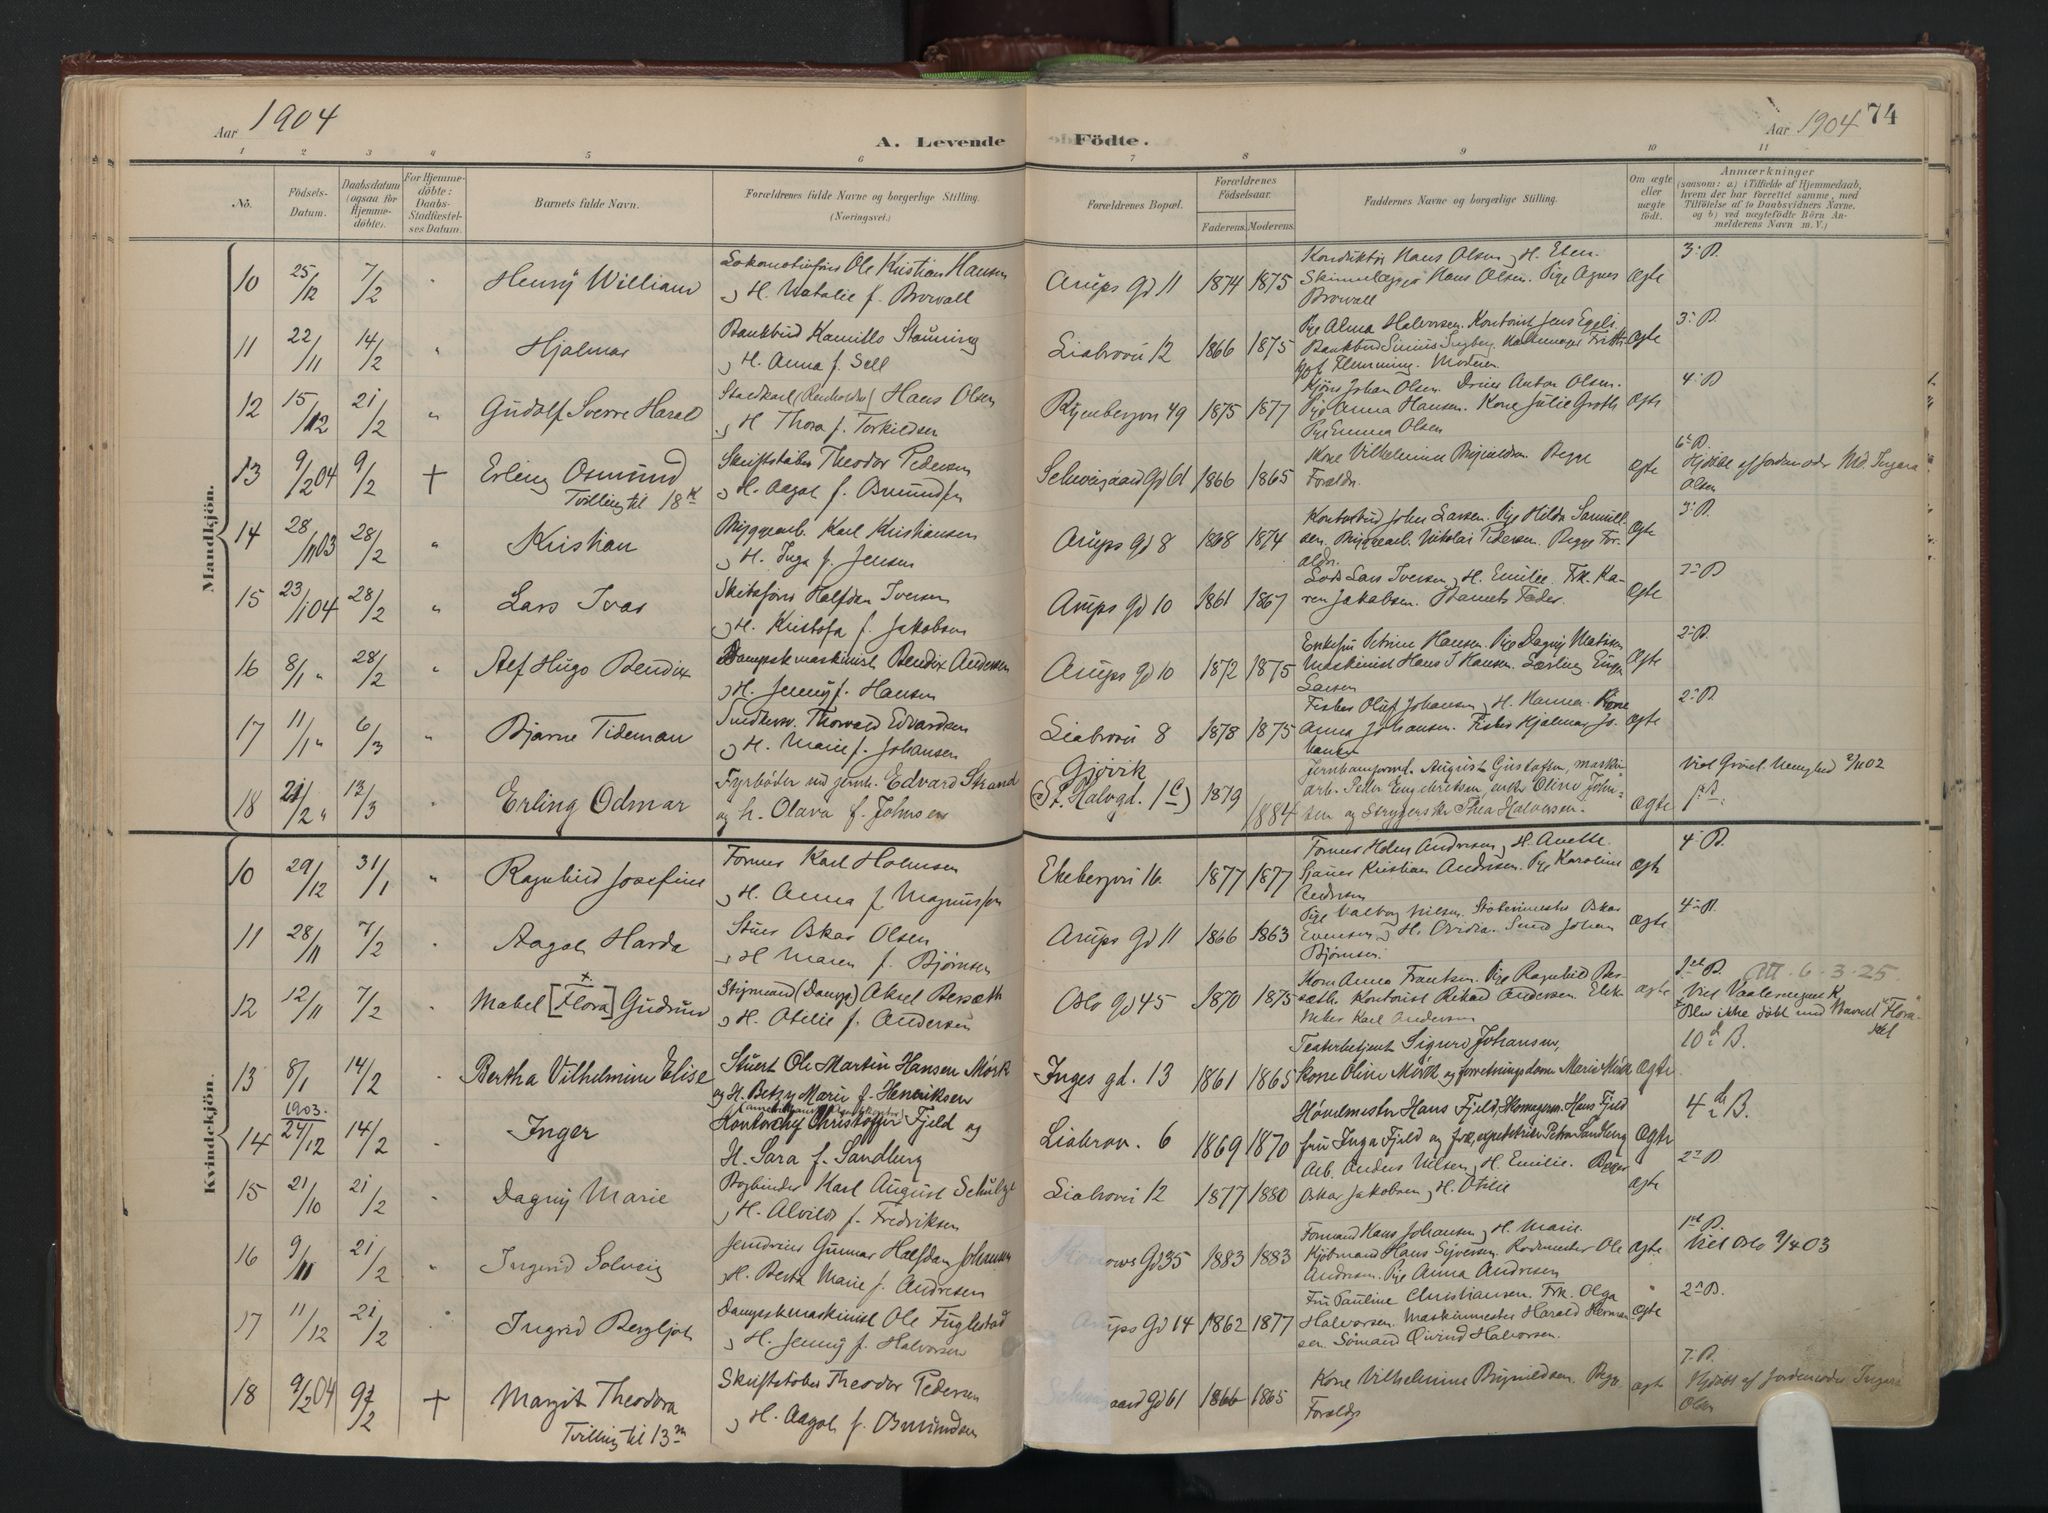 Aar 1904
A. Levende Födte.
Aar 1904 74
1 2 3 4 5 6 7 8 9 10 11
No.
Födsels-
Datum.
Daabsdatum
(ogsaa for
Hjemme-
döbte).
For Hjemme-
döbte:
Daabs-
Stadfæstel-
ses Datum.
Barnets fulde Navn.
Forældrenes fulde Navne og borgerlige Stilling.
(Næringsvei.)
Forældrenes Bopæl.
Forældrenes
Födselsaar.
Faderens. Moderens.
Faddernes Navne og borgerlige Stilling.
Om ægte
eller
uægte
födt.
Anmærkninger
(saasom: a) i Tilfælde af Hjemmedaab,
hvem der har forrettet samme, med
Tilföielse af to Daabsvidners Navne,
og b) ved uægtefödte Börn An-
melderens Navn m. V.)
Mandkjön.
10 25/12 7/2 " Henry William
Ole Kristian Hansen
H. Natalie f. Browall
Arups Gd 11 1874 1875
Konduktør Hans Olsen, H. Ellen.
Hans Olsen. Pige Agnes
Browall
Ægte
3. B.
11 22/11 14/2 " Hjalmar
Bankbud Kamillo Stauning
H. Anna f. Sell
Liabrovn 12 1866 1875
Pige Alma Halvorsen. Kontorist Jens
Flemming. Moderen
Ægte
3. B.
12 15/12 21/2 " Gudolf Sverre Harald
Hans Olsen
H Thora f. Torkildsen
Ryenbergvn 49 1875 1877
Johan Olsen. Anton Olsen.
Pige Anna Hansen. Kone Julie Groth
Pige Emma Olsen
Ægte
4. B
13 9/2 04 9/2 + Erling Osmund
Tvilling til 18 k
Skriftstøber Theodor Pedersen
H. Aagot f. Osmundsen
Schweigaard Gd 61 1866 1865
Kone Vilhelmine Brynildsen. Begge
Forældr.
Ægte
6te B.
Hjdøbt af Jordemoder Md. Ingara
Olsen
14 28/11 03 28/2 " Kristian
Bryggearb. Karl Kristiansen
H. Inga f. Jensen
Arups Gd 8 1868 1874
Kontorbud John Larsen. Pige Hilda Samuel-
sen. Bryggearb. Nikolai Pedersen. Begge For-
ældr.
Ægte
3. B.
15 23/1 04 28/2 " Lars Ivar
Halfdan Iversen
H. Kristofa f. Jakobsen
Arups Gd 10 1861 1867
Lods Lars Iversen, H. Emilie. Frk. Ka-
ren Jakobsen. Barnets Fader.
Ægte
2. B
16 8/1 " 28/2 " Alf Hugo Bendix
Dampskmaskinist Bendix Andersen
H. Jenny f. Hansen
Arups Gd 10 1872 1875
Enkefru Petrine Hansen. Pige Dagny Madsen
Maskinist Hans J Hansen. Lærling
Larsen
Ægte
2. B.
17 11/1 " 6/3 " Bjarne Tideman
Thorvald Edvardsen
H. Marie f. Johansen
Liabrovn 8 1878 1875
Fisker Oluf Johansen, H. Hanna. Kone
Anna Johansen. Fisker Hjalmar Jo-
hansen
Ægte
2. B.
18 21/2 " 13/3 " Erling Odmar
Fyrbøder ved jernb. Edvard Strand
og h. Olava f. Johnsen
Gjøvik
(St. Halvgd. 1 c) 1879 1884
August Gustafsen, maskin-
arb. Peter Engebretsen, enke Oline John-
sen og Strygerske Thea Halvorsen.
Ægte
Viet Grøuel. Menighed 2/11 02
1st B.
Kvindekjön.
10 29/12 31/1 " Ragnhild Josefine
Former Karl Holmsen
H. Anna f. Magnussen
Ekebergvn 16. 1877 1877
Former Andresen, H. Anette.
Kristian Andresen. Pige Karoline
Andresen
Ægte
4. B.
11 28/11 7/2 " Aagot Harda
Oskar Olsen
H Maren f. Bjørnsen
Arups Gd 11 1866 1863
Pige Valborg Nilsen. Oskar
Evensen, H. Ovidia. Johan
Bjørnsen.
Ægte
4. B.
12 12/11 7/2 " Mabel [Flora] Gudrun
Styrmand (Damps) Aksel Berseth
H. Otilie f. Andersen
Oslo Gd 45 1870 1875
Anna Frantsen. Pige Ragnhild Ber-
seth. Kontorist Rikard Andersen.
Karl Andersen
Ægte
B. Att. 6.3.25.
Viet Vaalerengens K.
Blev ikke døbt med Navnet "Flora"
13 8/1 14/2 " Bertha Vilhelmine Elise
Stuert Ole Martin Hansen Mörk
og H. Betzy Marie f. Henriksen
Inges gd. 13 1861 1865
Teaterbetjent Sigurd Johansen,
kone Oline Mörk og forretningsdame Marie Mörk
Ægte
10de B.
14 1903. 24/12 14/2 " Inger
Christoffer Fjeld og
H. Sara f. Sandberg
Liabrovn. 6 1869 1870
Høvelmester Hans Fjeld, Skomagerm. Hans Fjeld
fru Inga Fjeld og Petra Sandberg
Ægte
4de B.
15 21/10 21/2 " Dagny Marie
Bogbinder Karl August Schulze
H. Alvilde f. Fredriksen
Liabrovn 12 1877 1880
Arb. Anders Nilsen, H. Emilie.
Oskar Jakobsen, H. Otilie
Ægte
2. B
16 9/11 21/2 " Ingrid Solveig
Gunnar Halfdan Johansen
H. Berta Marie f. Andresen
Gd 35 1883 1883
Formand Hans Johansen, H. Marie.
Kjøbmand Hans Syversen. Rodemester Ole
Andresen. Pige Anna Andresen
Ægte
1st B.
Viet Oslo 9/4 03
17 11/12 21/2 " Ingrid Bergljot
Dampskmaskinist Ole Fuglestad
H. Jenny f. Halvorsen
Arups Gd 14 1862 1877
Fru Pauline Christiansen. Frk. Olga
Halvorsen. Maskinmester Harald Herman-
sen. Sømand Øivind Halvorsen.
Ægte
2. B.
18 9/2 04 9/2 + Margit Theodora
Tvilling til 13 m
Skriftstøber Theodor Pedersen
H. Aagot f. Osmundsen
Schweigaard Gd 61 1866 1865
Kone Vilhelmine Brynildsen. Begge
Forældr
Ægte
7. B.
Hjdøbt af Jordemoder Ingara
Olsen